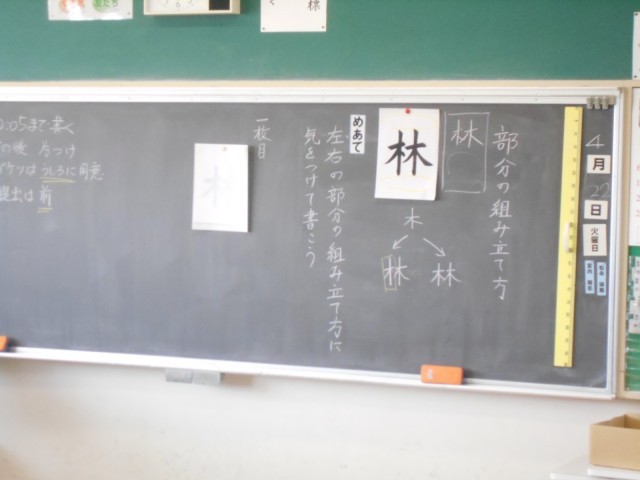 4
月
22
日
火曜日
部分の組み立て方
林
林
木
林 林
めあて
左右の部分の組み立て方に
気をつけて書こう
一枚目
林
0:05まで書く
の後 片つけ
はうしろに用意
提出は前